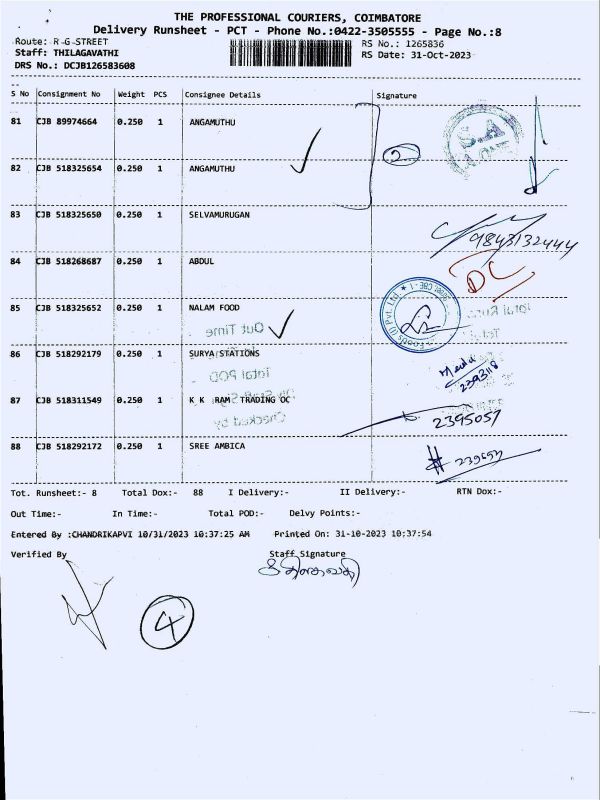 THE PROFESSIONAL COURIERS, COIMBATORE
Delivery Runsheet - PCT - Phone No.:0422-3505555 - Page No.:8
Route: R G STREET
RS No.: 1265836
Staff: THILAGAVATHI
RS Date: 31-Oct-2023
DRS No.: DCJB126583608
S No Consignment No Weight PCS Consignee Details Signature
81 CJB 89974664 0.250 1 ANGAMUTHU
2
S.A
82 CJB 518325654 0.250 1 ANGAMUTHU
83 CJB 518325650 0.250 1 SELVAMURUGAN
9843132444
84 CJB 518268687 0.250 1 ABDUL
DC
85 CJB 518325652 0.250 1 NALAM FOOD
Out Time
86 CJB 518292179 0.250 1 SURYA STATIONS
Total POD
2393118
87 CJB 518311549 0.250 1 K K RAM TRADING OC
Checked by
2395057
88 CJB 518292172 0.250 1 SREE AMBICA
Tot. Runsheet:- 8 Total Dox:- 88 I Delivery:- II Delivery:- RTN Dox:-
Out Time:- In Time:- Total POD:- Delvy Points:-
Entered By :CHANDRIKAPVI 10/31/2023 10:37:25 AM Printed On: 31-10-2023 10:37:54
Verified By Staff Signature
4